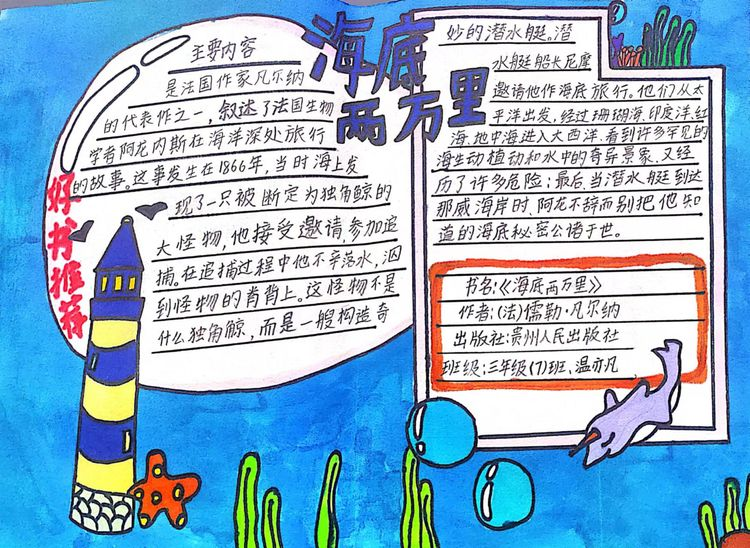 海底
两万里
好书推荐
主要内容
是法国作家凡尔纳
的代表作之一，叙述了法国生物
学者阿龙内斯在海洋深处旅行
的故事。这事发生在1866年，当时海上发
现了一只被断定为独角鲸的
大怪物，他接受邀请，参加追
捕。在追捕过程中他不辛落水，泅
到怪物的背背上。这怪物不是
什么独角鲸，而是一艘构造奇
妙的潜水艇。潜
水艇船长尼摩
邀请他作海底旅行。他们从太
平洋出发，经过珊瑚海、印度洋、红
海、地中海进入大西洋，看到许多罕见的
海生动植动和水中的奇异景象，又经
历了许多危险；最后，当潜水艇到达
那威海岸时，阿龙不辞而别把他知
道的海底秘密公诸于世。
书名：《海底两万里》
作者：(法)儒勒·凡尔纳
出版社：贵州人民出版社
班级：三年级(7)班、温亦凡